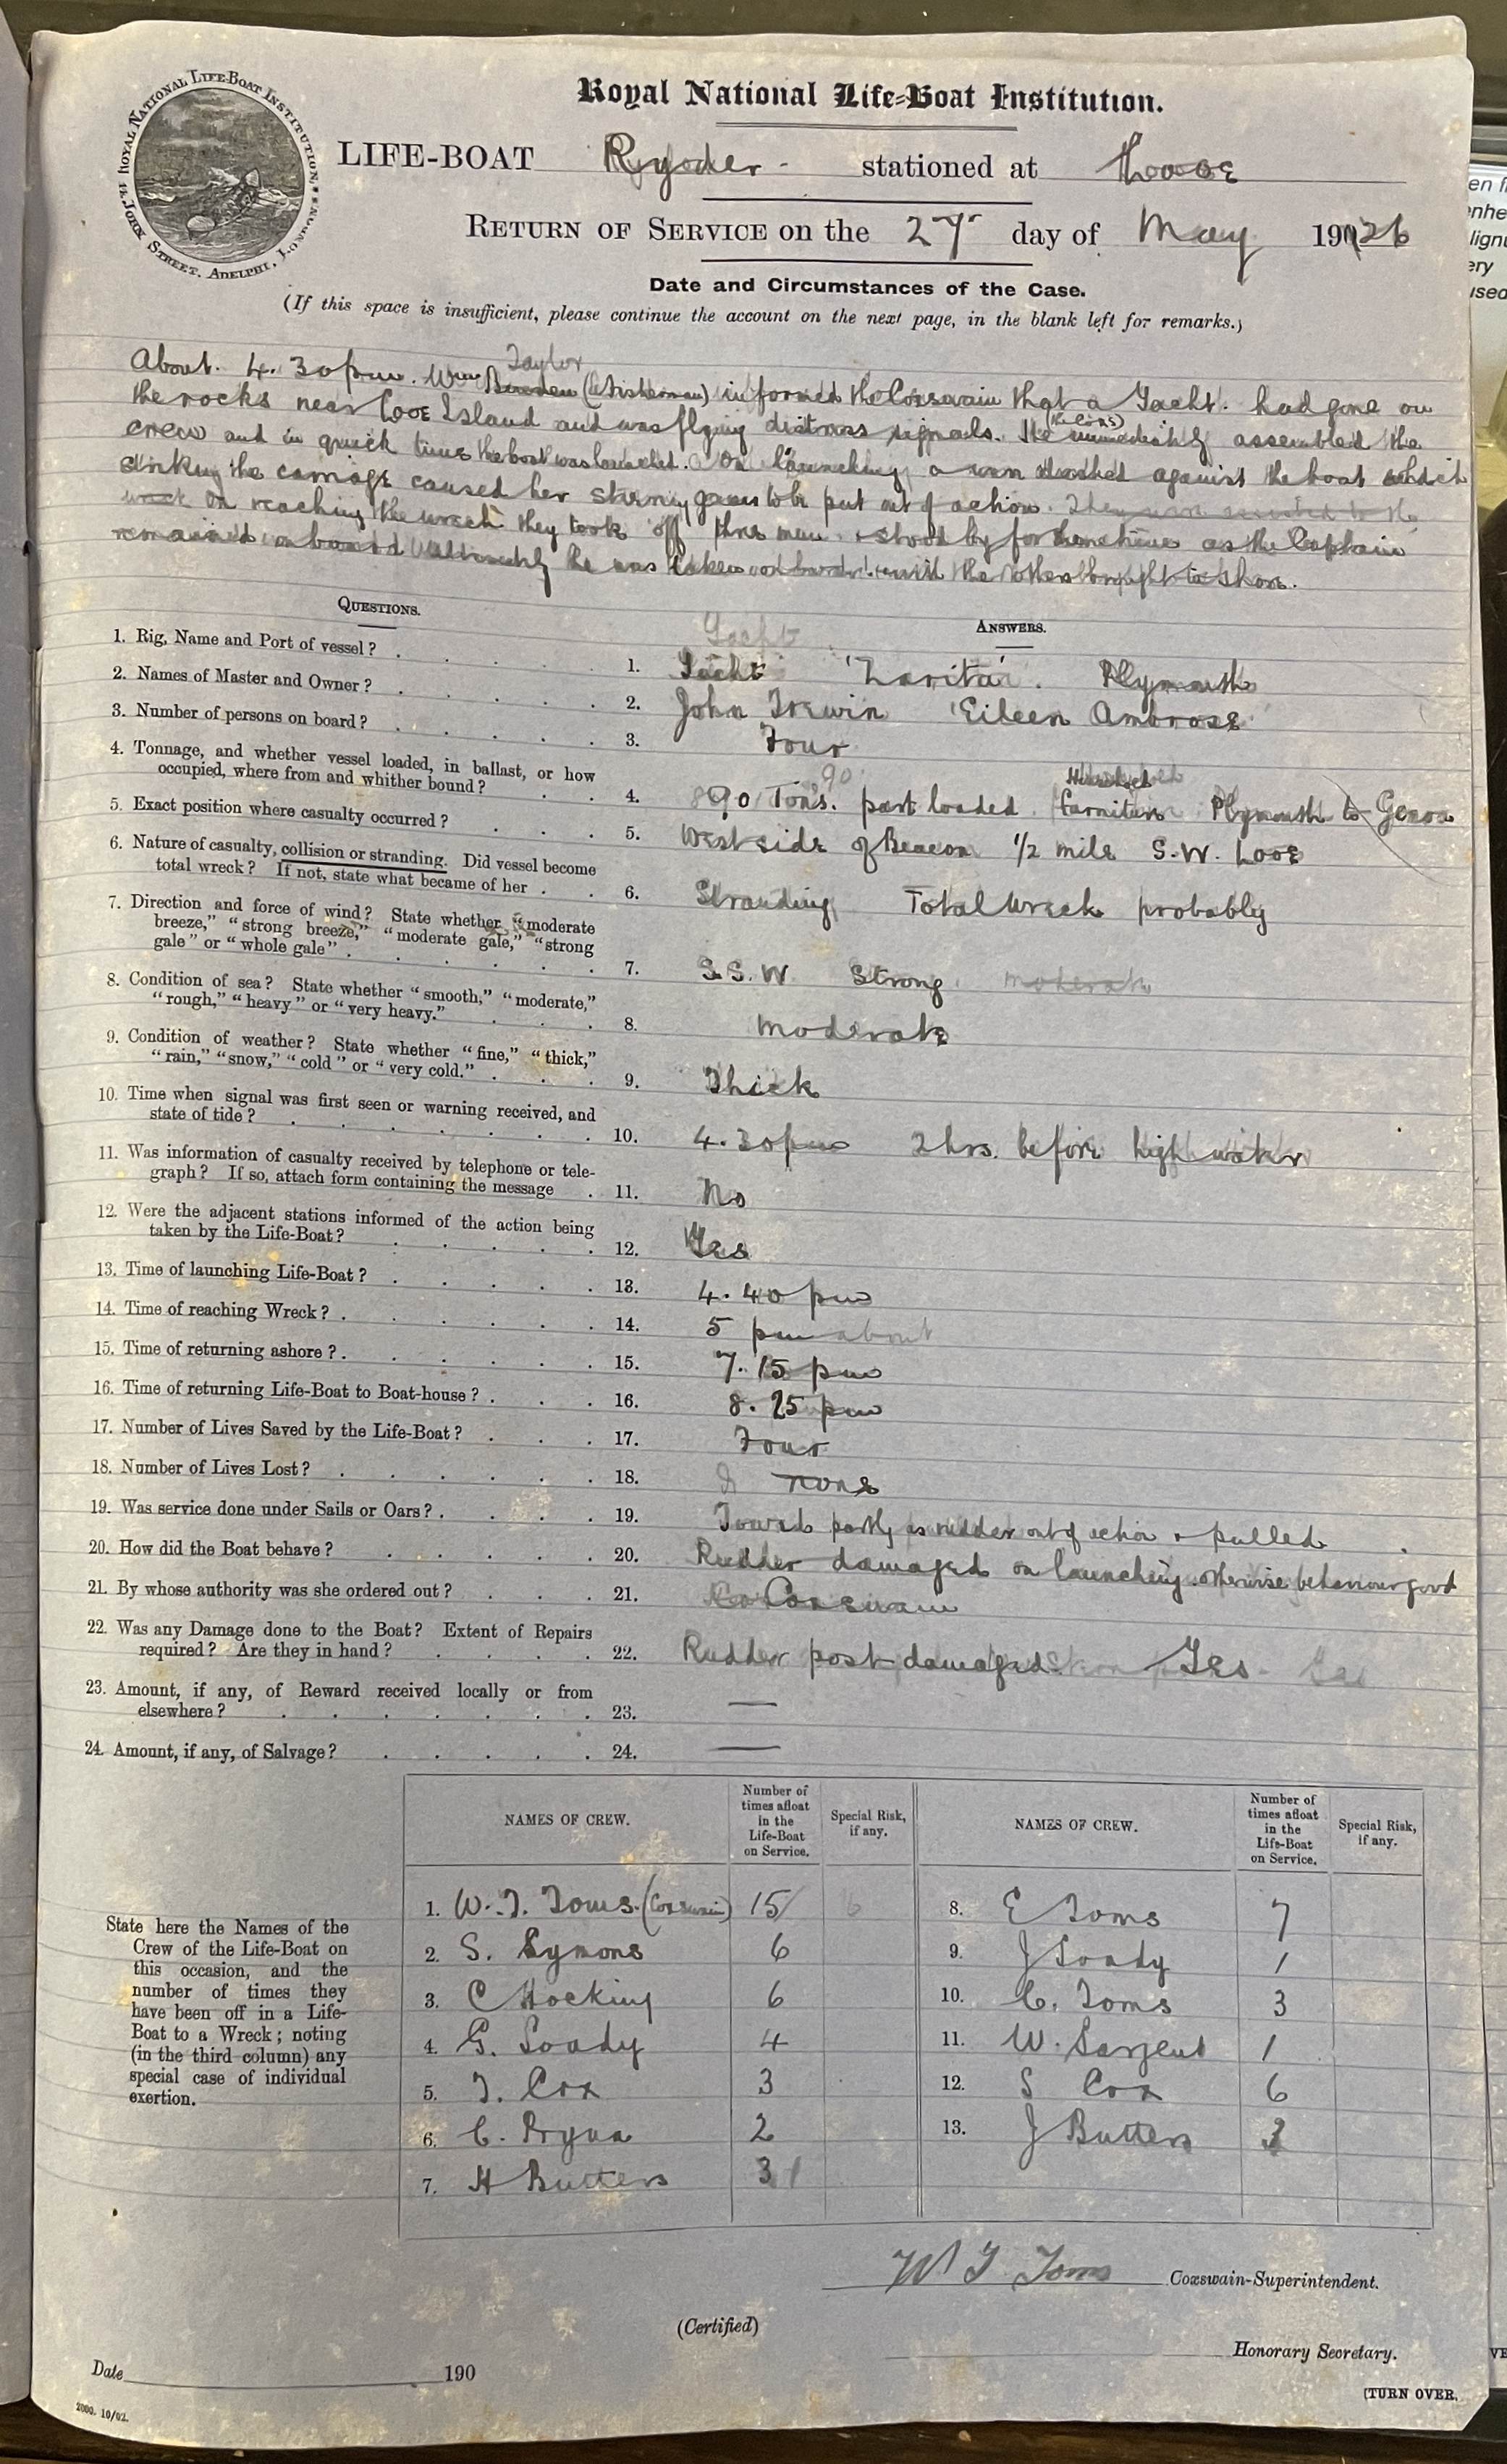 ROYAL NATIONAL LIFE-BOAT INSTITUTION.
14, JOHN STREET, ADELPHI, LONDON
Royal National Life-Boat Institution.
LIFE-BOAT Ryder - stationed at Looe
RETURN OF SERVICE on the 27 day of May 1926
Date and Circumstances of the Case.
(If this space is insufficient, please continue the account on the next page, in the blank left for remarks.)
Taylor
About 4.30 pm. Wm (a fisherman) informed the Coxswain that a Yacht had gone on
the rocks near Looe Island and was flying distress signals. He (the Coxs) immediately assembled the
crew and in quick time the boat was launched. On launching a dashed against the boat which
striking the carriage caused her steering gear to be put out of action. They were to the
wreck On reaching the wreck they took off three men & stood by for as the Captain
remained on board Ultimately he was taken on board with the others brought to shore.
QUESTIONS.
ANSWERS.
1. Rig, Name and Port of vessel? 1. Yacht 'Zarita'. Plymouth
2. Names of Master and Owner? 2. John Trewin 'Eileen Ambrose'
3. Number of persons on board? 3. Four
4. Tonnage, and whether vessel loaded, in ballast, or how
occupied, where from and whither bound? 4. 90 Tons. part loaded Household furniture Plymouth to Genoa
5. Exact position where casualty occurred? 5. West side of Beacon 1/2 mile S.W. Looe
6. Nature of casualty, collision or stranding. Did vessel become
total wreck? If not, state what became of her 6. Stranding Total Wreck probably
7. Direction and force of wind? State whether "moderate
breeze," "strong breeze," "moderate gale," "strong
gale" or "whole gale" 7. S.S.W Strong moderate
8. Condition of sea? State whether "smooth," "moderate,"
"rough," "heavy" or "very heavy." 8. Moderate
9. Condition of weather? State whether "fine," "thick,"
"rain," "snow," "cold" or "very cold." 9. Thick
10. Time when signal was first seen or warning received, and
state of tide? 10. 4.30 pm 2 hrs. before high water
11. Was information of casualty received by telephone or tele-
graph? If so, attach form containing the message 11. No
12. Were the adjacent stations informed of the action being
taken by the Life-Boat? 12. Yes
13. Time of launching Life-Boat? 13. 4.40 pm
14. Time of reaching Wreck? 14. 5 pm about
15. Time of returning ashore? 15. 7.15 pm
16. Time of returning Life-Boat to Boat-house? 16. 8.25 pm
17. Number of Lives Saved by the Life-Boat? 17. Four
18. Number of Lives Lost? 18. None
19. Was service done under Sails or Oars? 19. Towed partly as rudder out of action & pulled
20. How did the Boat behave? 20. Rudder damaged on launching. otherwise behaviour good
21. By whose authority was she ordered out? 21. Coxswain
22. Was any Damage done to the Boat? Extent of Repairs
required? Are they in hand? 22. Rudder post damaged. Yes
23. Amount, if any, of Reward received locally or from
elsewhere? 23. —
24. Amount, if any, of Salvage? 24. —
State here the Names of the
Crew of the Life-Boat on
this occasion, and the
number of times they
have been off in a Life-
Boat to a Wreck; noting
(in the third column) any
special case of individual
exertion.
NAMES OF CREW. Number of times afloat in the Life-Boat on Service. Special Risk, if any. NAMES OF CREW. Number of times afloat in the Life-Boat on Service. Special Risk, if any.
1. W. T. Toms. (Coxswain) 15 8. E Toms 7
2. S. Symons 6 9. J Soady 1
3. C Hocking 6 10. C. Toms 3
4. G. Soady 4 11. W. Sargent 1
5. T. Cox 3 12. S Cox 6
6. C. Pryna 2 13. J Butters 3
7. H Butters 3
W T Toms Coxswain-Superintendent.
(Certified)
Honorary Secretary.
Date 190
2000. 10/02.
[TURN OVER.